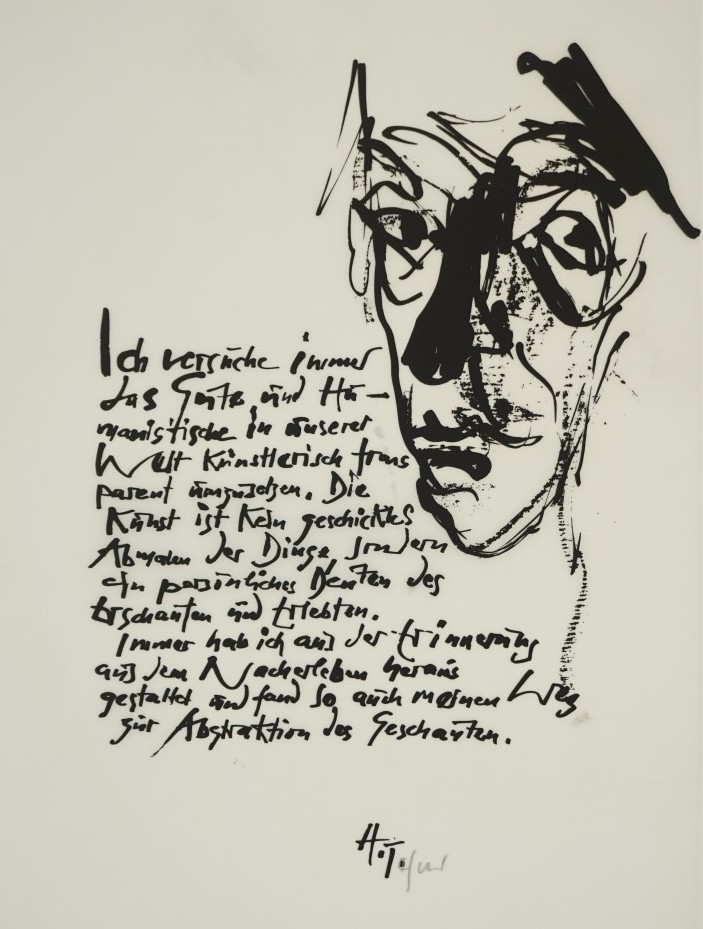 Ich versuche immer
das Gute und Hu-
manistische in unserer
Welt künstlerisch trans
parent umzusetzen. Die
Kunst ist kein geschicktes
Abmalen der Dinge sondern
ein persönliches Deuten des
Erschauten und Erlebten.
Immer hab ich aus der Erinnerung
aus dem Nacherleben heraus
gestaltet und fand so auch meinen Weg
zur Abstraktion des Geschauten.
H.T.